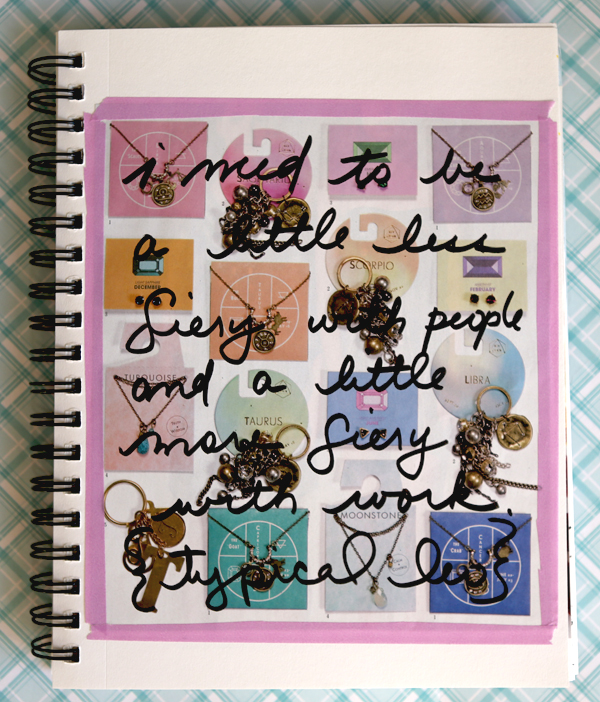 i need to be
a little less
fiery with people
and a little
more fiery
with work.
{typical leo}
SCORPIO
DECEMBER
FEBRUARY
TURQUOISE
TAURUS
LIBRA
MOONSTONE